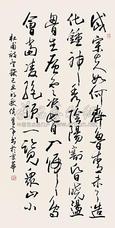 岱宗夫如何齊魯青未了造
化鍾神秀陰陽割昏曉蕩
胸生層雲決眥入歸鳥
會當凌絕頂一覽衆山小
杜甫詩望嶽